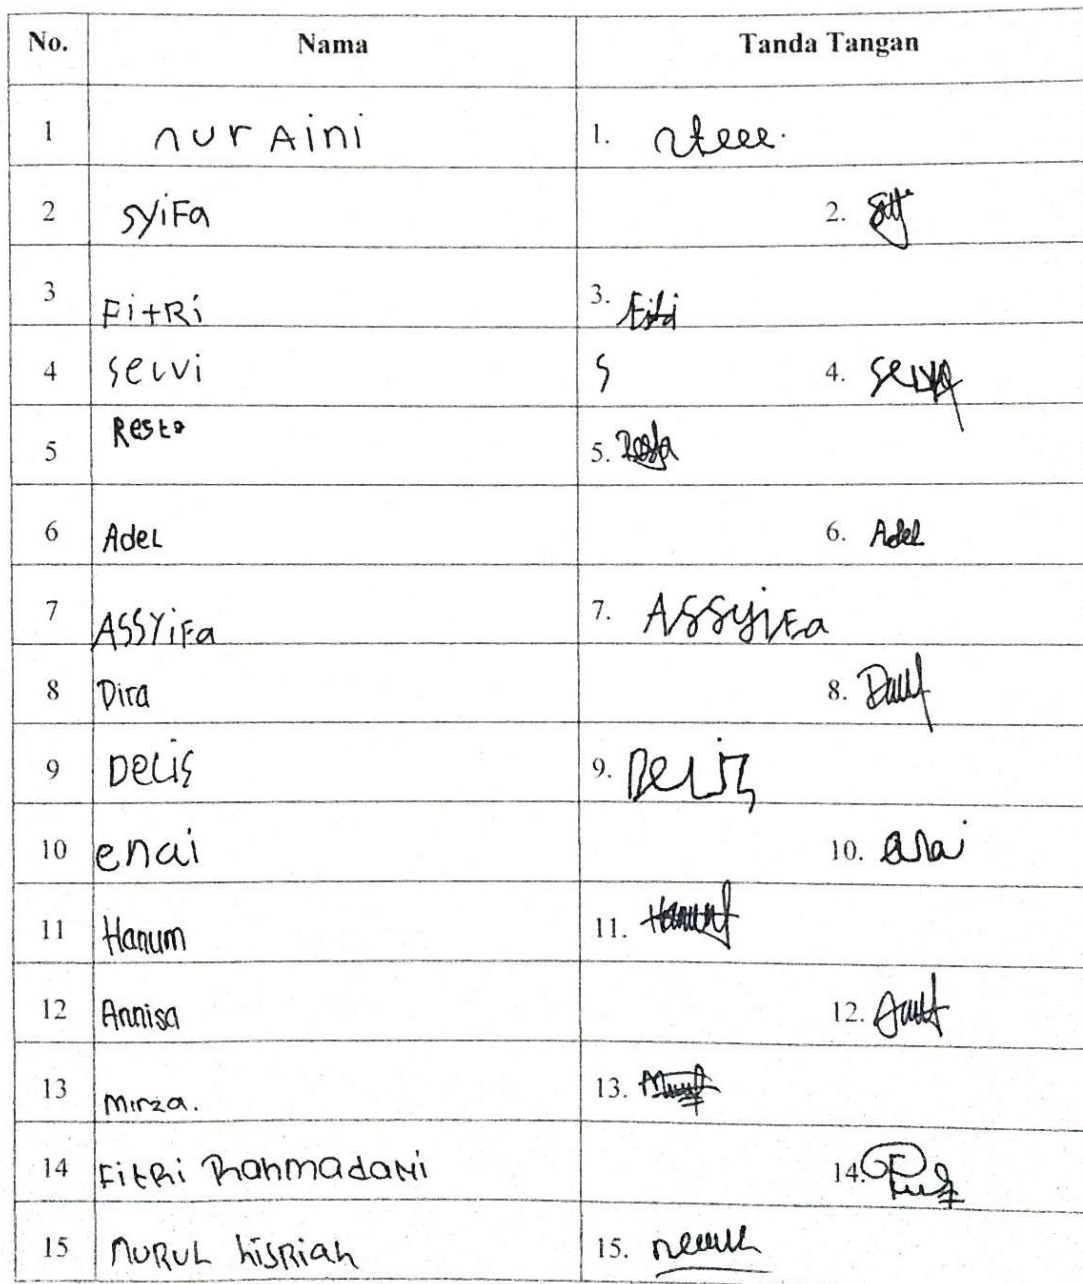 No. Nama Tanda Tangan
1 nur Aini 1.
2 syiFa 2.
3 FitRi 3. Fitri
4 selvi S 4.
5 Resta 5. Resta
6 AdeL 6. Adel
7 ASSYiFa 7. ASSyiFa
8 Dira 8.
9 Delis 9. Delis
10 enai 10. enai
11 Hanum 11. Hanum
12 Annisa 12.
13 Mirza. 13.
14 FitRi RahmadaNi 14.
15 NURUL hisRiah 15.